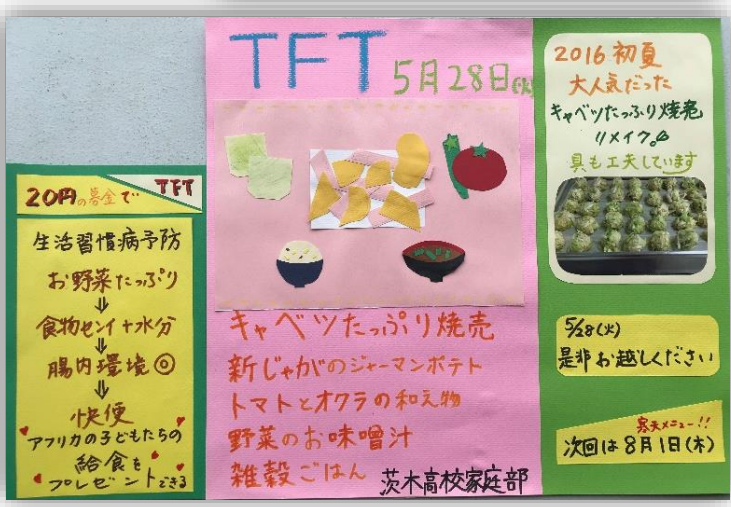 20円の募金で
TFT
生活習慣病予防
お野菜たっぷり
⇓
食物センイ+水分
⇓
腸内環境◎
⇓
快便
アフリカの子どもたちの
給食を
プレゼントできる
TFT
5月28日(火)
キャベツたっぷり焼売
新じゃがのジャーマンポテト
トマトとオクラの和え物
野菜のお味噌汁
雑穀ごはん
茨木高校家庭部
2016初夏
大人気だった
キャベツたっぷり焼売
リメイク。
具も工夫しています
5/28(火)
是非お越しください
寒天メニュー!!
次回は8月1日(木)